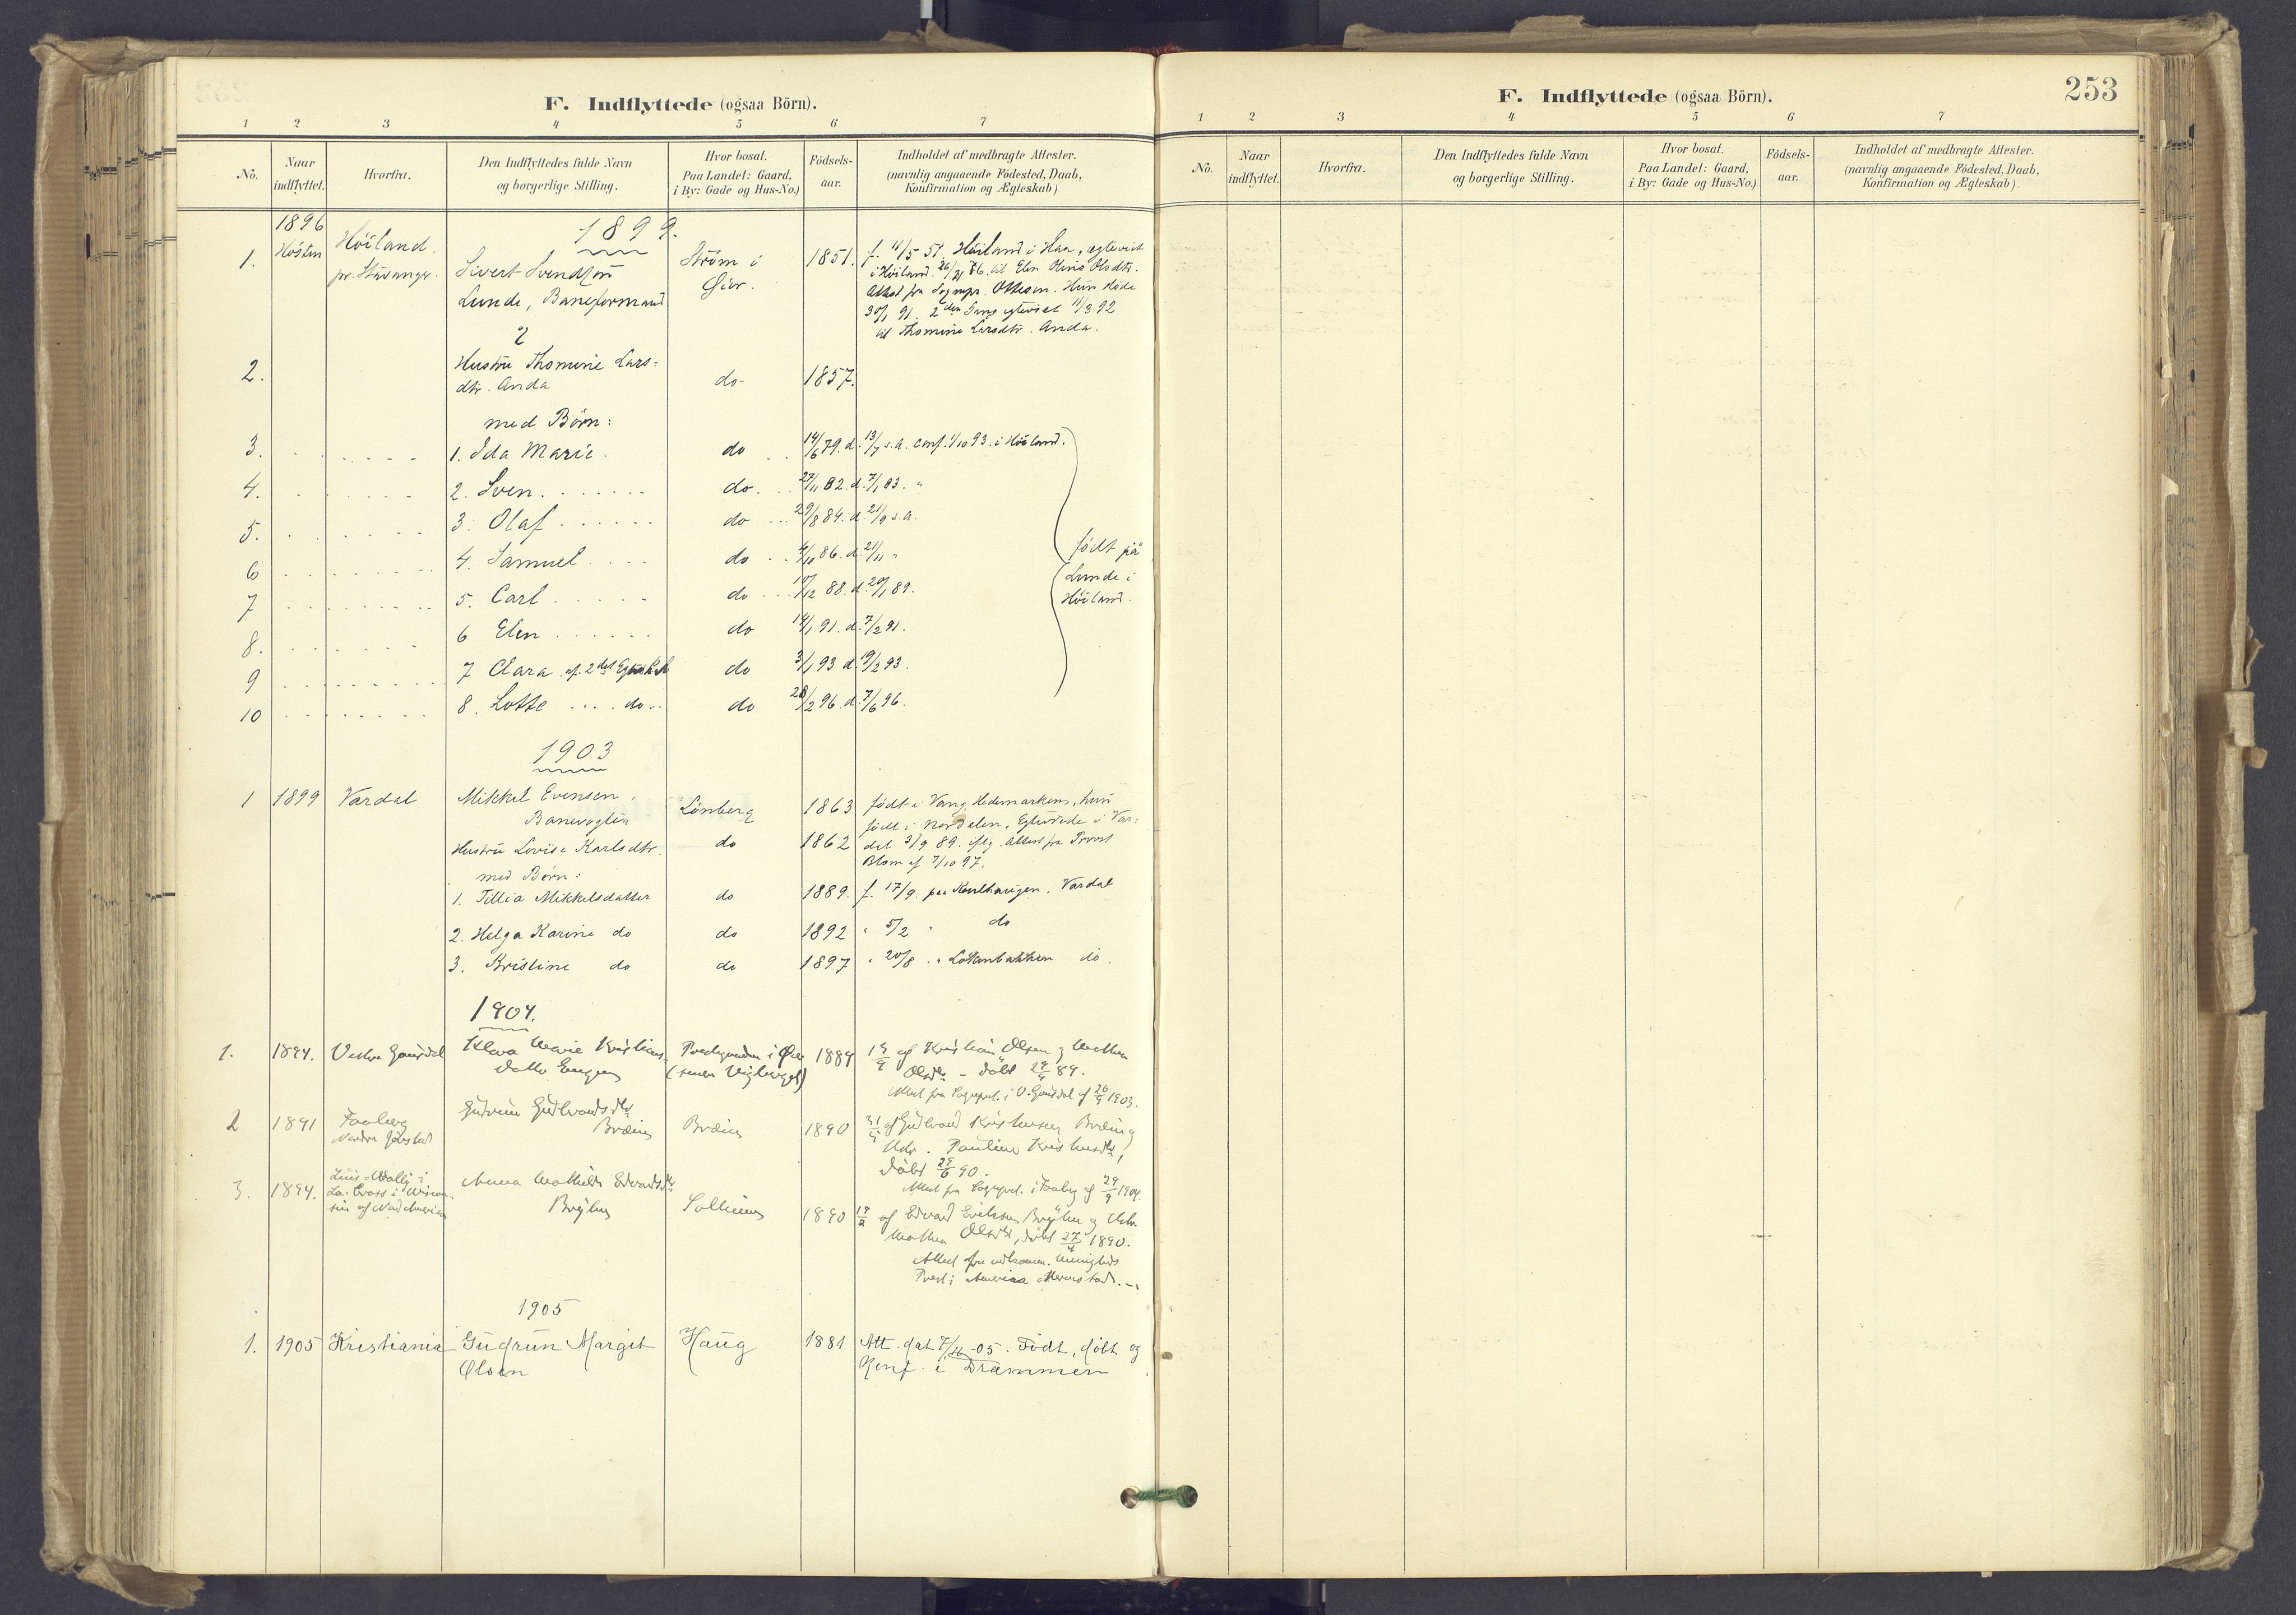 F. Indflyttede (ogsaa Börn).
1 2 3 4 5 6 7
No. Naar indflyttet. Hvorfra. Den Indflyttedes fulde Navn og borgerlige Stilling. Hvor bosat. Paa Landet: Gaard, i By: Gade og Hus-No.) Födsels-aar. Indholdet af medbragte Attester. (navnlig angaaende Födested, Daab, Konfirmation og Ægteskab)
1896
1899.
1. Hösten Höiland pr. Stavanger. Sivert Svendsen Ström i Öier. 1851. f. 11/5 51 Höiland i Haa, egteviet
Lunde, Baneformand i Höiland til Elen Olsdtr.
Attest fra Sognepr. Ottesen. Hun döde
30/1 91. 2den Gang egteviet 11/3 92
til Thomine Larsdtr. Anda.
&
2. Hustru Thomine Lars-
dtr. Anda do 1857.
med Börn:
3. 1. Ida Marie. do 14/6 79. d. 13/7 s.a. conf. 1/10 93. i Höiland.
4. 2. Sven. do. 27/11 82. d. 7/1 83. "
5. 3. Olaf do 29/8 84. d. 21/9 s.a.
6 4. Samuel do 4/10 86. d. 21/11 "
födt på
7 5. Carl do 10/12 88. d. 20/1 89.
Lunde i
Höiland.
8. 6 Elen do 14/1 91. d. 7/2 91.
9 7 Clara af 2det Egteskab do 3/1 93 d. 19/2 93.
10 8. Lotte do do 28/2 96. d. 7/6 96.
1903
1 1899 Vardal Mikkel Evensen, Lönberg 1863 födt i Vang, Hedemarken, hun
Banevogter födt i Nordelen. Egteviede i Var-
Hustru Lovise Karlsdtr. do 1862 dal 3/9 89. iflg. attest fra Provst
med Börn: Blom af 7/10 97.
1. Tillia Mikkelsdatter do 1889. f. 17/9. paa Vardal
2. Helga Karine do do 1892 " 5/2 " do
3. Kristine do do 1897 " 20/8 " " do.
1904.
1. 1894. Vestre Gausdal Klara Marie Kristians- i Öier 1889 af Kristian Olsen og Mathea
datter Engen Olsdtr - döbt 89.
Attest fra Sognepr. i V. Gausdal af 1903.
2 1891 Faaberg Gudrun Gudbrandsdtr
Bræin Bræin 1890 31/ af Gudbrand Kristensen Bræin og
Pauline Kristensdtr,
döbt 29/6 90.
Attest fra Sognepr. i Faaberg af 29/9 1904.
3. 1894. Anna Mathilde Edvardsdtr
Bryhn 1890 af Edvard Eriksen Bryhn og
Mathea Olsdtr, döbt 27/4 1890.
Attest fra Menigheds
Præst i Amerika
1905
1. 1905 Kristiania Gudrun Margit Haug 1881 Att. dat 7/11-05. Födt, döbt og
Olsen Konf. i Drammen
F. Indflyttede (ogsaa Börn).
253
1 2 3 4 5 6 7
No. Naar indflyttet. Hvorfra. Den Indflyttedes fulde Navn og borgerlige Stilling. Hvor bosat. Paa Landet: Gaard, i By: Gade og Hus-No.) Födsels-aar. Indholdet af medbragte Attester. (navnlig angaaende Födested, Daab, Konfirmation og Ægteskab)